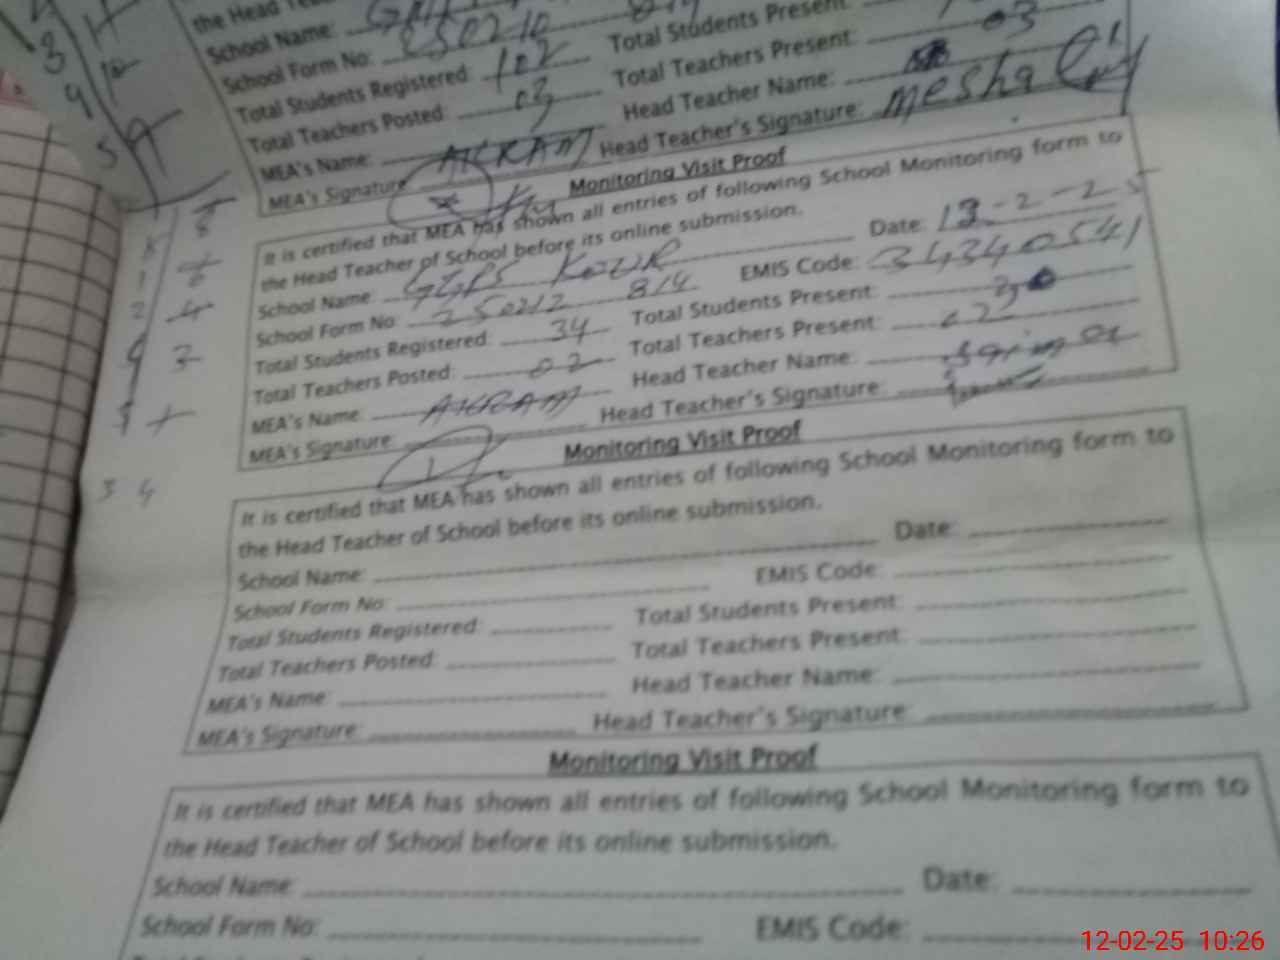 the Head
School Name:
School Form No: 250210
Total Students Registered: 102 Total Students Present:
Total Teachers Posted: 03 Total Teachers Present: 03
MEA's Name: AKRAM Head Teacher Name:
MEA's Signature Head Teacher's Signature:
Monitoring Visit Proof
It is certified that MEA has shown all entries of following School Monitoring form to
the Head Teacher of School before its online submission.
School Name: GGPS KOUR Date: -2-25
School Form No: 250212 814 EMIS Code: 34340541
Total Students Registered: 34 Total Students Present:
Total Teachers Posted: 02 Total Teachers Present: 02
MEA's Name: AKRAM Head Teacher Name:
MEA's Signature: Head Teacher's Signature:
Monitoring Visit Proof
It is certified that MEA has shown all entries of following School Monitoring form to
the Head Teacher of School before its online submission.
School Name: Date:
School Form No: EMIS Code:
Total Students Registered: Total Students Present:
Total Teachers Posted: Total Teachers Present:
MEA's Name: Head Teacher Name:
MEA's Signature: Head Teacher's Signature:
Monitoring Visit Proof
It is certified that MEA has shown all entries of following School Monitoring form to
the Head Teacher of School before its online submission.
School Name: Date:
School Form No: EMIS Code:
12-02-25 10:26